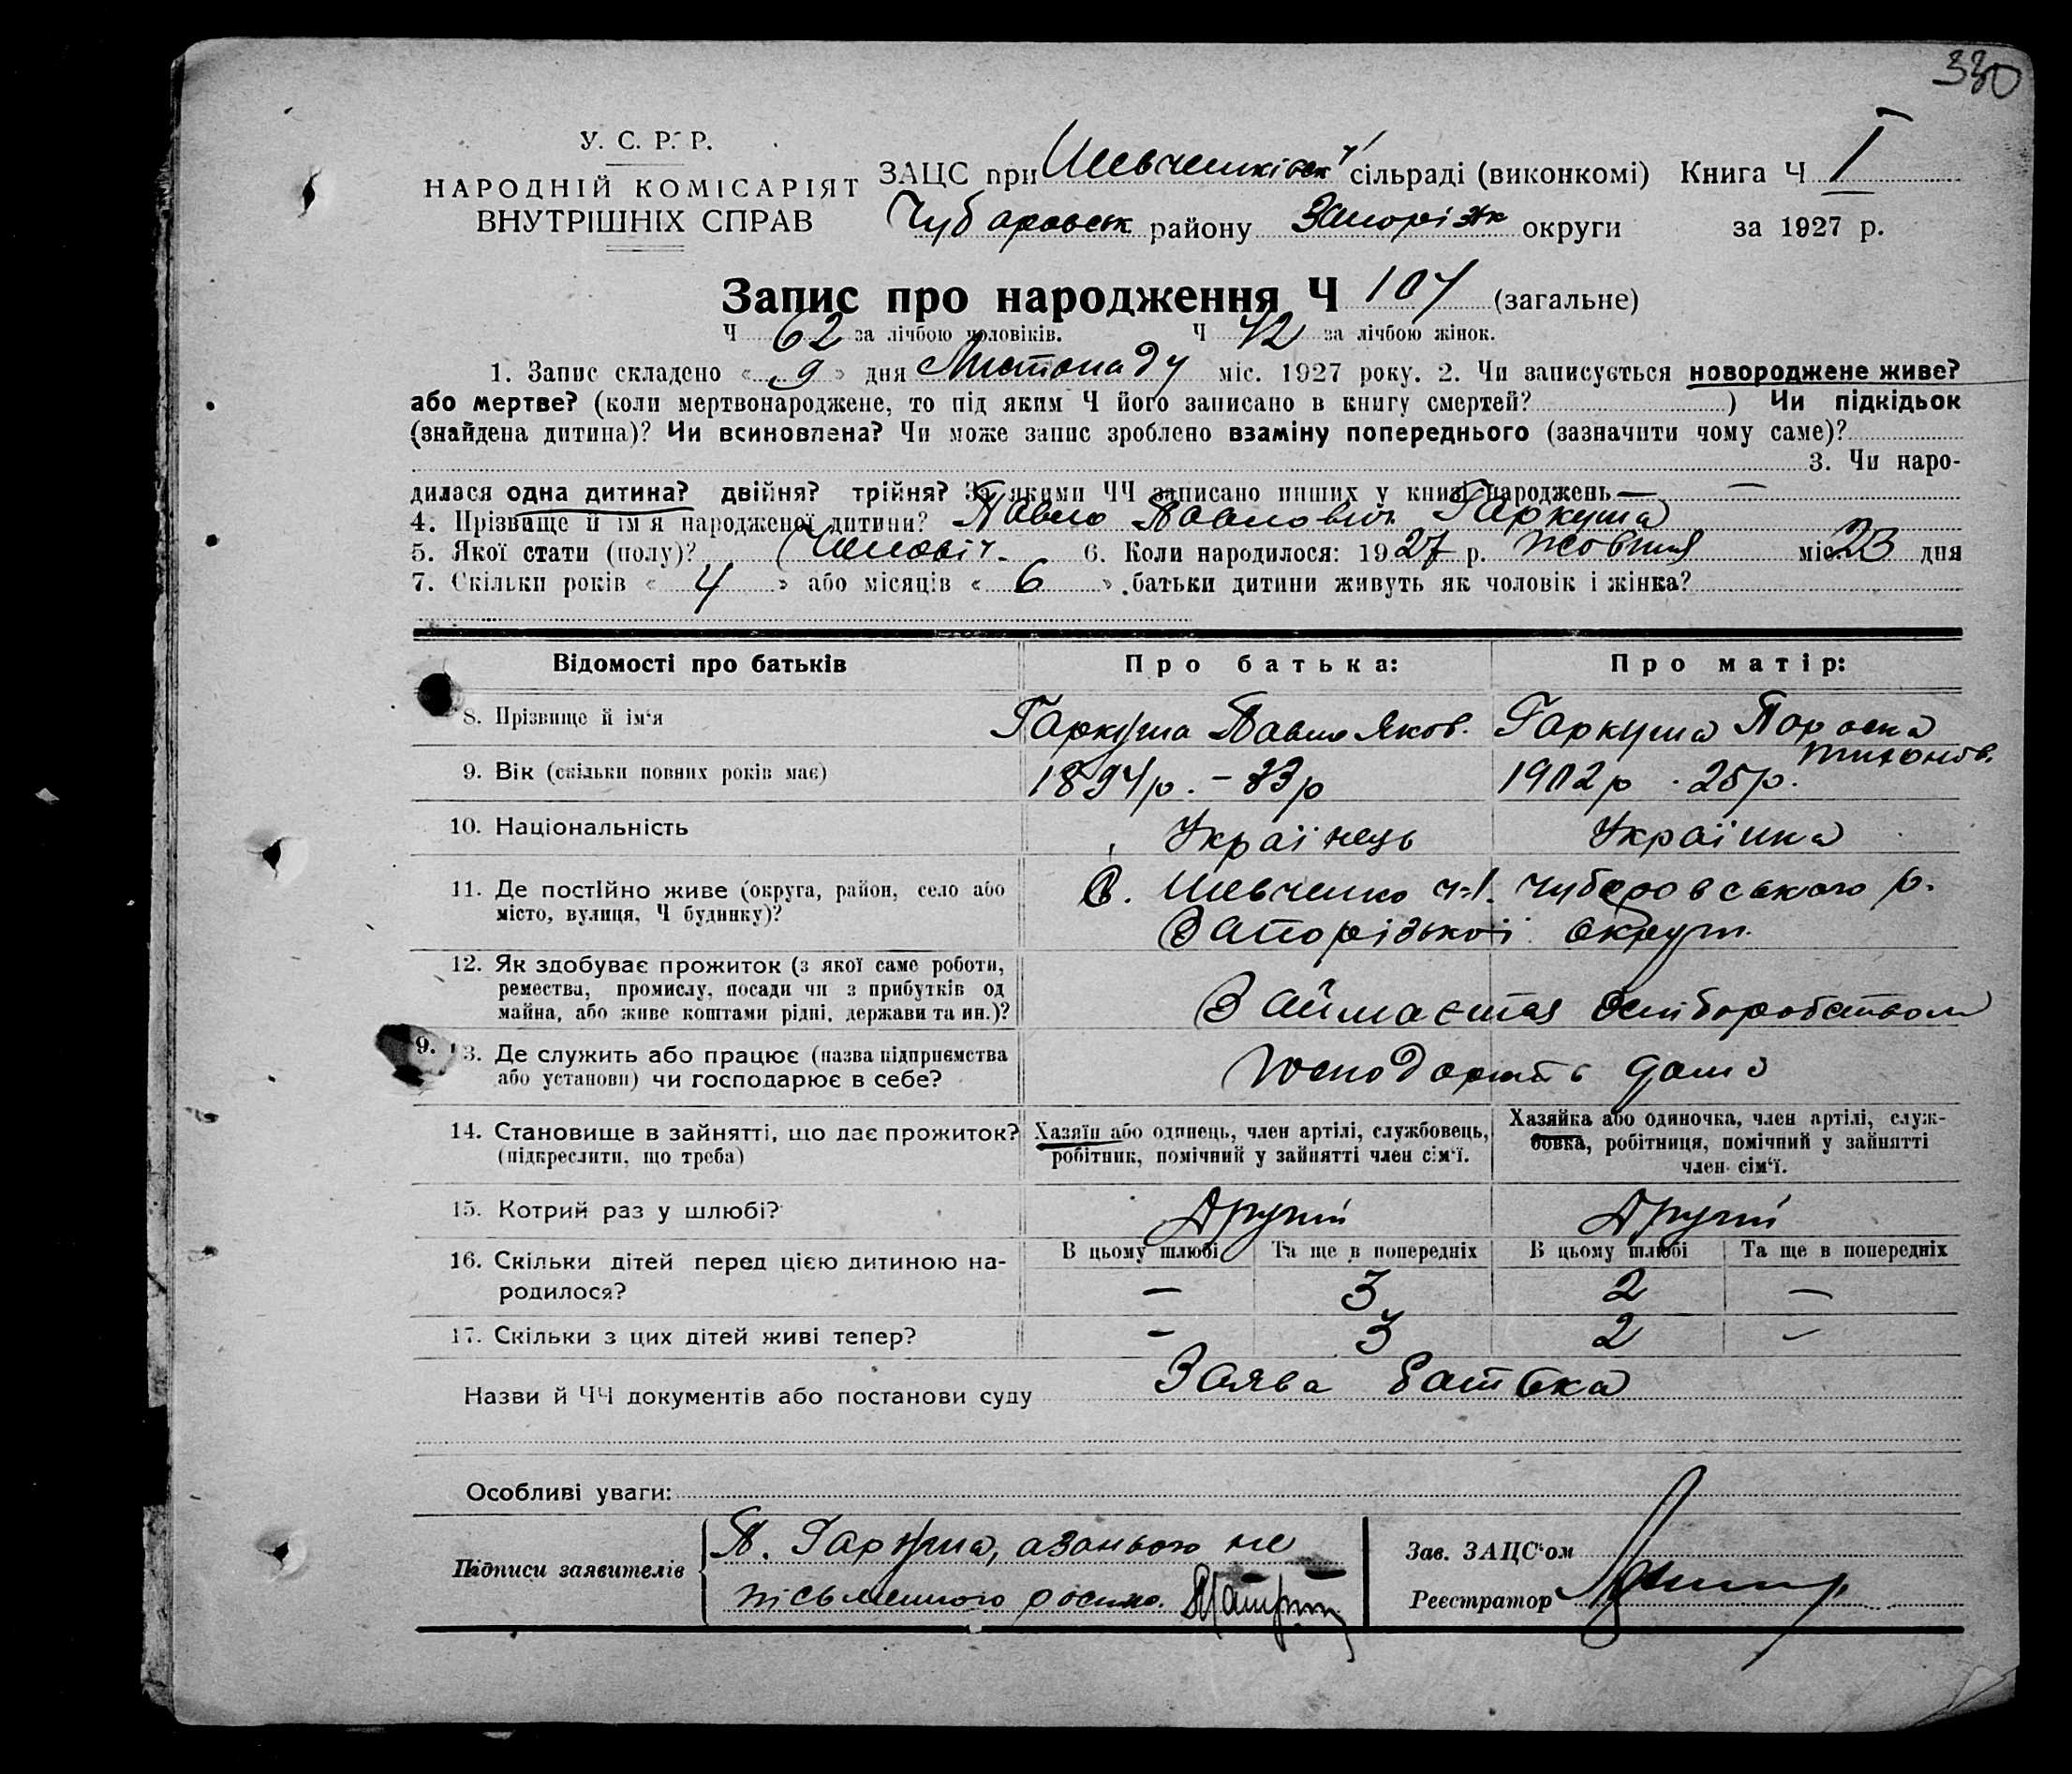 330
У. С. Р. Р.
НАРОДНІЙ КОМІСАРІЯТ
ВНУТРІШНІХ СПРАВ
ЗАЦС при Шевченківськ сільраді (виконкомі) Книга Ч I
Чубаровськ району Запоріжк округи за 1927 р.
Запис про народження Ч 104 (загальне)
Ч 62 за лічбою чоловіків. Ч 42 за лічбою жінок.
1. Запис складено « 9 » дня Листопаду міс. 1927 року. 2. Чи записується новороджене живе?
або мертве? (коли мертвонароджене, то під яким Ч його записано в книгу смертей? ) Чи підкідьок
(знайдена дитина)? Чи всиновлена? Чи може запис зроблено взаміну попереднього (зазначити чому саме)?
3. Чи наро-
дилася одна дитина? двійня? трійня? За якими ЧЧ записано инших у книзі народжень — —
4. Прізвище й ім'я народженої дитини? Павло Павлович Гаркуша
5. Якої стати (полу)? Чоловіч. 6. Коли народилося: 1927 р. жовтня міс. 23 дня
7. Скільки років « 4 » або місяців « 6 » батьки дитини живуть як чоловік і жінка?
Відомості про батьків Про батька: Про матір:
8. Прізвище й ім'я Гаркуша Павло Яков. Гаркуша Параска
Тихонов.
9. Вік (скільки повних років має) 1894р. – 33р 1902р. 25р.
10. Національність Українець Українка
11. Де постійно живе (округа, район, село або С. Шевченко ч-1. Чубаровського р.
місто, вулиця, Ч будинку)? Запорізької округи.
12. Як здобуває прожиток (з якої саме роботи,
ремества, промислу, посади чи з прибутків од
майна, або живе коштами рідні, держави та ин.)? Займається
9. 13. Де служить або працює (назва підприємства
або установи) чи господарює в себе? Господарить дома
14. Становище в зайнятті, що дає прожиток?
(підкреслити, що треба)
Хазяїн або одинець, член артілі, службовець,
робітник, помічний у зайнятті член сім'ї.
Хазяйка або одиночка, член артілі, служ-
бовка, робітниця, помічний у зайнятті
член сім'ї.
15. Котрий раз у шлюбі? Другий Другий
В цьому шлюбі Та ще в попередніх В цьому шлюбі Та ще в попередніх
16. Скільки дітей перед цією дитиною на-
родилося? — 3 2 —
17. Скільки з цих дітей живі тепер? — 3 2 —
Назви й ЧЧ документів або постанови суду Заява батька
Особливі уваги:
Підписи заявителів П. Гаркуша, а за нього не
письменного роспис.
Зав. ЗАЦС'ом
Реєстратор